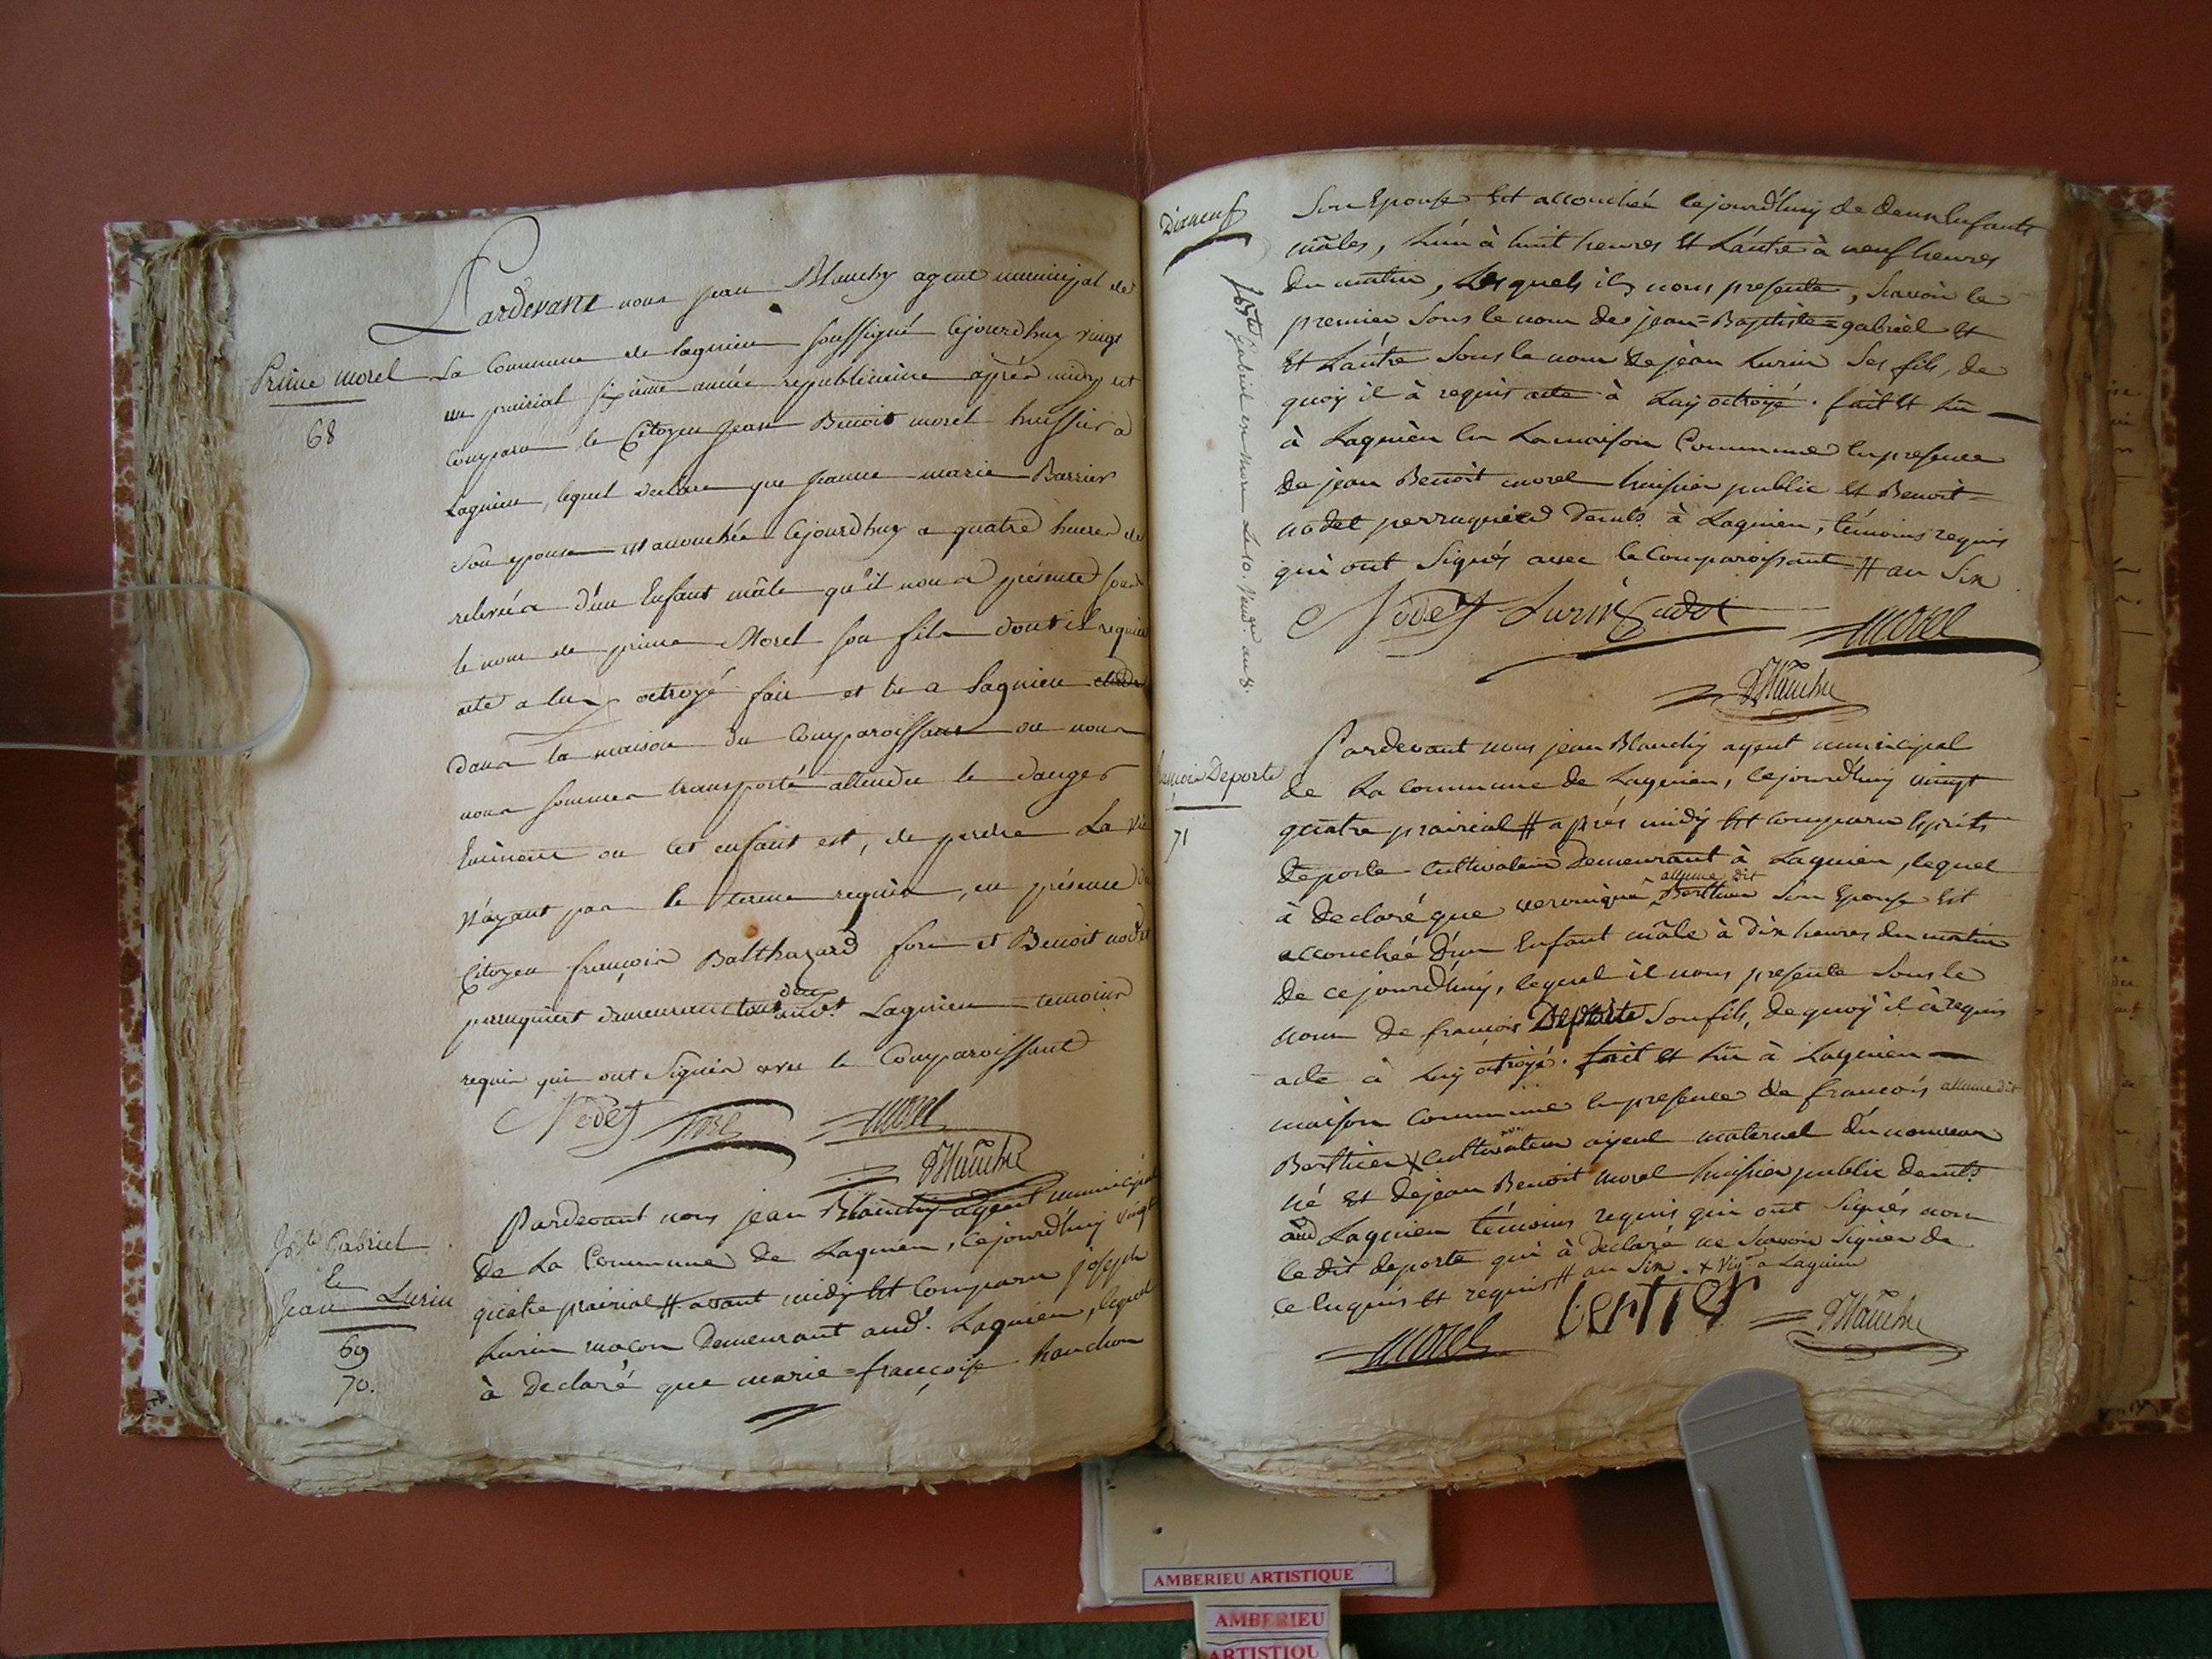 Prime morel
68
Pardevant nous jean Blanchy agent municipal de
la Commune de lagnieu soussigné Cejourdhuy vingt
un prairial sixième année republicaine après midy est
comparu le Citoyen Jean Benoit morel huissier a
Lagnieu, lequel declare que Jeanne marie Barrier
son epouse est accouchée Cejourdhuy a quatre heures de
relevée d'un Enfant mâle qu'il nous a présenté sous
le nom de prime Morel son fils dont il requiert
acte a luy octroyé fait et lu a Lagnieu
dans la maison du Comparoissant ou nous
nous sommes transporté attendu le danger
Eminent ou cet enfant est, de perdre La vie
N'ayant pas le terme requis, en présence du
Citoyen françois Balthazard fore et Benoit nodet
perruquiert demeurant aud.t Lagnieu temoins
requis qui ont Signés avec le Comparoissant
Nodet morel
Blanchy
Jn Bte Gabriel
Et
Jean Lurin
69
70.
Pardevant nous jean Blanchy agent municipal
de La Commune de Lagnieu, Cejourd'huy vingt
quatre prairial # avant midy Est Comparu joseph
Lurin maçon Demeurant aud. Lagnieu, lequel
à Declaré que marie=françoise hauchon
Dixneuf
Jn Bte Gabriel en mort Le 10. Vend.re an 8.
Son Epouse Est accouchée cejourd'huy de deux Enfants
mâles, L'un à huit heures Et L'autre à neuf heures
du matin, Lesquels ils nous presente, Scavoir le
premier Sous le nom de jean=Baptiste=gabriel et
Et L'autre Sous le nom De jean Lurin Ses fils, de
quoy il à requis acte à Luy octroyé. fait Et Lu
à Lagnieu En La maison Commune En presence
de jean Benoit morel huissier public Et Benoit
nodet perruquier Demts. à Lagnieu, témoins requis
qui ont Signés avec le Comparoissant # an Six
Nodet Lurin Cadet morel
Blanchy
françois Deporte
71
Pardevant nous jean Blanchy agent municipal
de La commune de Lagnieu, cejourd'huy vingt
quatre prairial # après midy Est comparu
deporte Cultivateur Demeurant à Lagnieu, lequel
allume dit
à Declaré que veronique Berthier Son Epouse Est
accouchée D'un Enfant mâle à Dix heures du matin
De ce jourd'huy, lequel il nous presente Sous le
nom De françois Deporte Son fils, de quoy il à requis
acte à Luy octroyé. fait Et Lu à Lagnieu
maison commune En presence de françois allume dit
Berthier X Cultivateur ayeul maternel du nouveau
né Et De jean Benoit morel huissier public Demts.
aud Lagnieu témoins requis qui ont Signés non
Le dit deporte qui à déclaré ne Scavoir Signer de
ce Enquis Et requis # an Six. X Vign.on a Lagnieu
morel bertier Blanchy
AMBERIEU ARTISTIQUE
AMBERIEU
ARTISTIQU